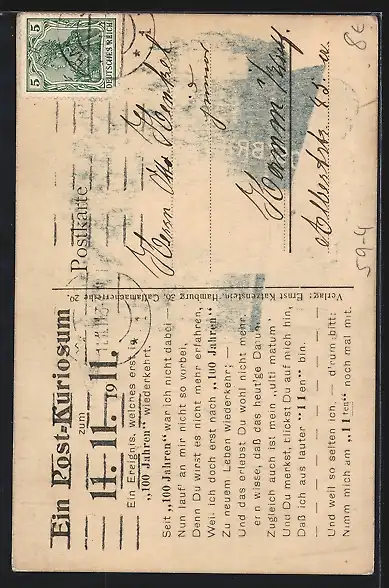 Ein Post-Kuriosum
zum
11. 11. 1911.
Ein Ereignis, welches erst in
„100 Jahren" wiederkehrt.
Seit „100 Jahren" war ich nicht dabei —
Nun lauf' an mir nicht so vorbei,
Denn Du wirst es nicht mehr erfahren,
Weil ich doch erst nach „100 Jahren"
Zu neuem Leben wiederkehr; —
Und das erlebst Du wohl nicht mehr.
Denn wisse, daß das heut'ge Datum
Zugleich auch ist mein „ulti matum"
Und Du merkst, blickst Du auf mich hin,
Daß ich aus lauter "11 en" bin.
— — — — — — — —
Und weil so selten ich, — d'rum bitt:
Nimm mich am „11 ten" noch mal mit.
Verlag: Ernst Kattenstein, Hamburg 36, Caffamacherreihe 20.
Postkarte
Herrn Otto
Hamm i/Westf.
Albertstr.
5
DEUTSCHES REICH
5
8€
59-4